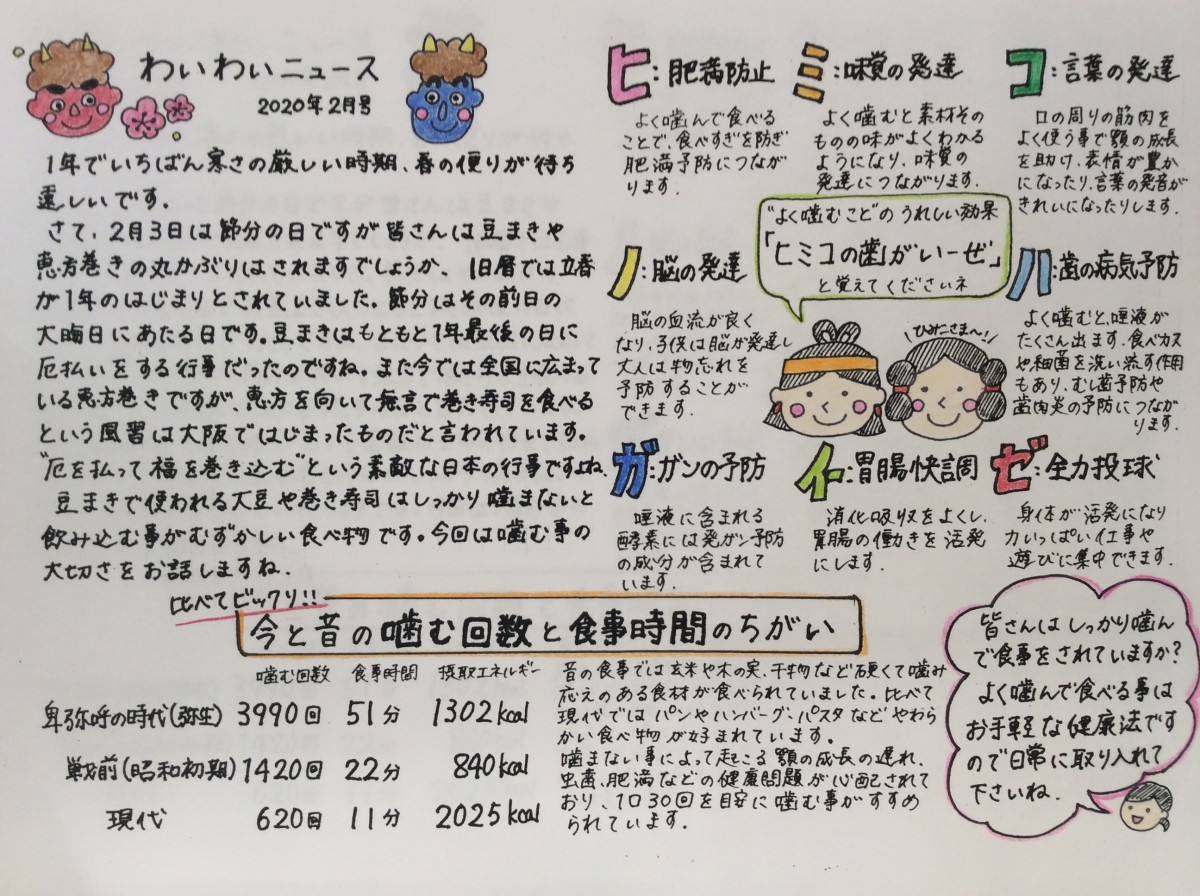 わいわいニュース
2020年2月号
1年でいちばん寒さの厳しい時期、春の便りが待ち
遠しいです。
さて、2月3日は節分の日ですが皆さんは豆まきや
恵方巻きの丸かぶりはされますでしょうか、旧暦では立春
が1年のはじまりとされていました。節分はその前日の
大晦日にあたる日です。豆まきはもともと1年最後の日に
厄払いをする行事だったのですね。また今では全国に広まって
いる恵方巻きですが、恵方を向いて無言で巻き寿司を食べる
という風習は大阪ではじまったものだと言われています。
"厄を払って福を巻き込む"という素敵な日本の行事ですよね
豆まきで使われる大豆や巻き寿司はしっかり噛まないと
飲み込む事がむずかしい食べ物です。今回は噛む事の
大切さをお話しますね.
ヒ:肥満防止
よく噛んで食べる
ことで、食べすぎを防ぎ
肥満予防につなが
ります.
ミ:味覚の発達
よく噛むと素材その
ものの味がよくわかる
ようになり、味覚の
発達につながります.
コ:言葉の発達
口の周りの筋肉を
よく使う事で顎の成長
を助け、表情が豊か
になったり、言葉の発音が
きれいになったりします.
"よく噛むこと"のうれしい効果
「ヒミコの歯がいーぜ」
と覚えてくださいネ
ひみこさま〜!
ノ:脳の発達
脳の血流が良く
なり、子供は脳が発達し
大人は物忘れを
予防することが
できます.
ハ:歯の病気予防
よく噛むと、唾液が
たくさん出ます.食べカス
や細菌を洗い流す作用
もあり、むし歯予防や
歯肉炎の予防につなが
ります.
ガ:ガンの予防
唾液に含まれる
酵素には発ガン予防
の成分が含まれて
います.
イ:胃腸快調
消化吸収をよくし、
胃腸の働きを活発
にします.
ゼ:全力投球
身体が活発になり
力いっぱい仕事や
遊びに集中できます.
比べてビックリ!!
今と昔の噛む回数と食事時間のちがい
噛む回数 食事時間 摂取エネルギー
卑弥呼の時代(弥生) 3990回 51分 1302kcal
戦前(昭和初期) 1420回 22分 840kcal
現代 620回 11分 2025kcal
昔の食事では玄米や木の実、干物など硬くて噛み
応えのある食材が食べられていました。比べて
現代ではパンやハンバーグ・パスタなどやわら
かい食べ物が好まれています。
噛まない事によって起こる顎の成長の遅れ、
虫歯、肥満などの健康問題が心配されて
おり、1口30回を目安に噛む事がすすめ
られています.
皆さんはしっかり噛ん
で食事をされていますか?
よく噛んで食べる事は
お手軽な健康法です
ので日常に取り入れて
下さいね.